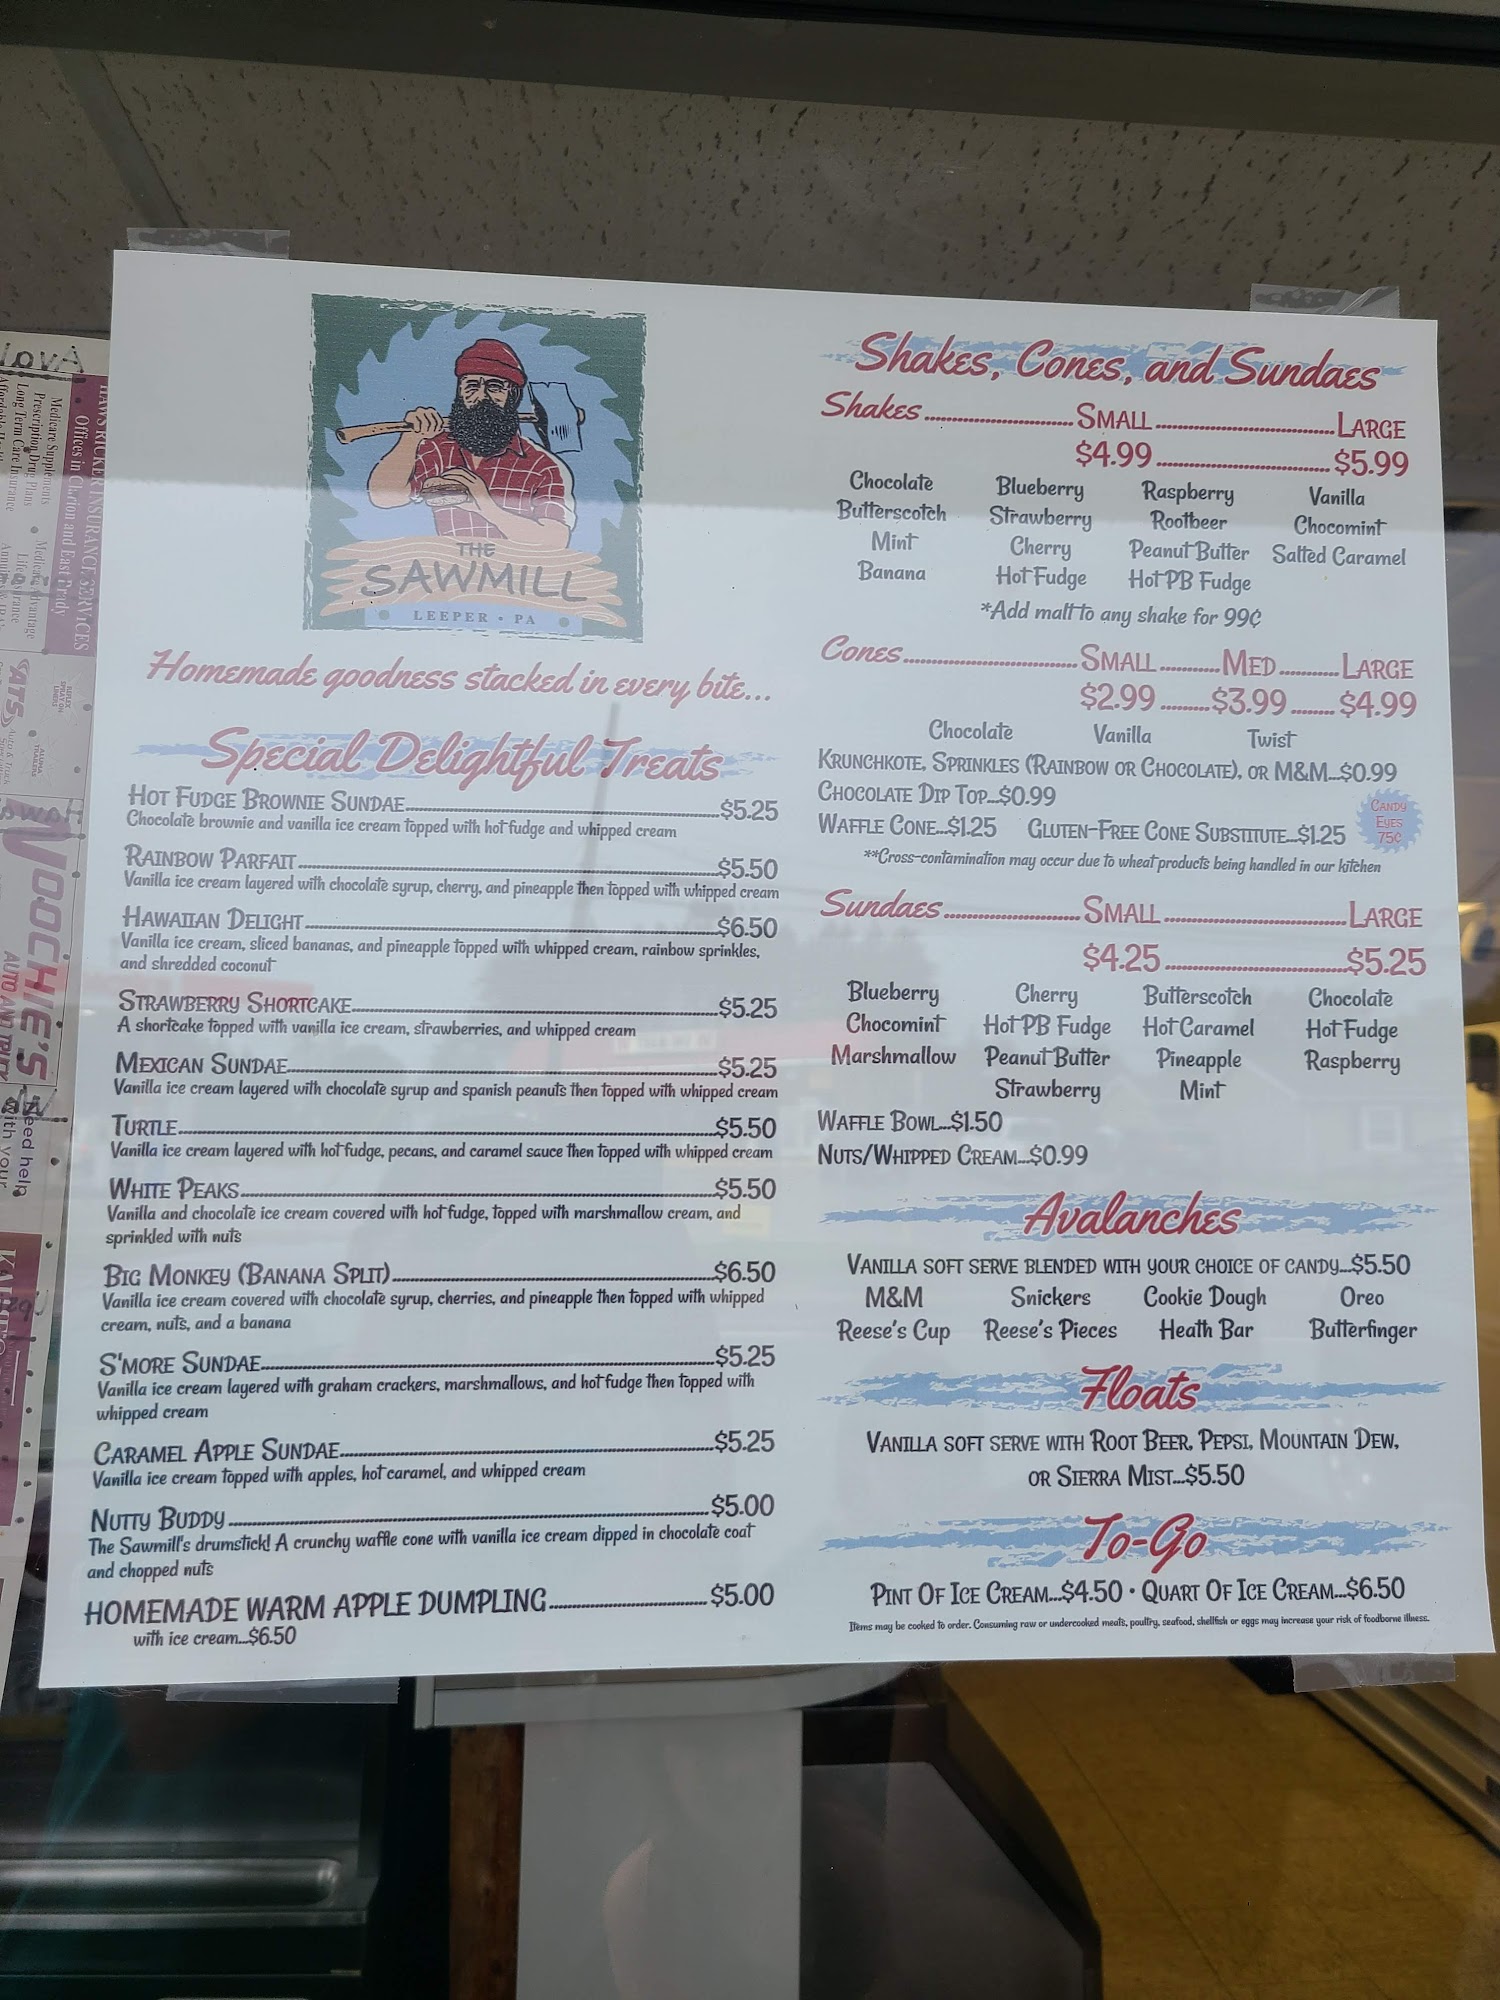 THE
SAWMILL
LEEPER • PA
Homemade goodness stacked in every bite...
Special Delightful Treats
HOT FUDGE BROWNIE SUNDAE $5.25
Chocolate brownie and vanilla ice cream topped with hot fudge and whipped cream
RAINBOW PARFAIT $5.50
Vanilla ice cream layered with chocolate syrup, cherry, and pineapple then topped with whipped cream
HAWAIIAN DELIGHT $6.50
Vanilla ice cream, sliced bananas, and pineapple topped with whipped cream, rainbow sprinkles,
and shredded coconut
STRAWBERRY SHORTCAKE $5.25
A shortcake topped with vanilla ice cream, strawberries, and whipped cream
MEXICAN SUNDAE $5.25
Vanilla ice cream layered with chocolate syrup and spanish peanuts then topped with whipped cream
TURTLE $5.50
Vanilla ice cream layered with hot fudge, pecans, and caramel sauce then topped with whipped cream
WHITE PEAKS $5.50
Vanilla and chocolate ice cream covered with hot fudge, topped with marshmallow cream, and
sprinkled with nuts
BIG MONKEY (BANANA SPLIT) $6.50
Vanilla ice cream covered with chocolate syrup, cherries, and pineapple then topped with whipped
cream, nuts, and a banana
S'MORE SUNDAE $5.25
Vanilla ice cream layered with graham crackers, marshmallows, and hot fudge then topped with
whipped cream
CARAMEL APPLE SUNDAE $5.25
Vanilla ice cream topped with apples, hot caramel, and whipped cream
NUTTY BUDDY $5.00
The Sawmill's drumstick! A crunchy waffle cone with vanilla ice cream dipped in chocolate coat
and chopped nuts
HOMEMADE WARM APPLE DUMPLING $5.00
with ice cream...$6.50
Shakes, Cones, and Sundaes
Shakes SMALL LARGE
$4.99 $5.99
Chocolate Blueberry Raspberry Vanilla
Butterscotch Strawberry Rootbeer Chocomint
Mint Cherry Peanut Butter Salted Caramel
Banana Hot Fudge Hot PB Fudge
*Add malt to any shake for 99¢
Cones SMALL MED LARGE
$2.99 $3.99 $4.99
Chocolate Vanilla Twist
KRUNCHKOTE, SPRINKLES (RAINBOW OR CHOCOLATE), OR M&M...$0.99
CHOCOLATE DIP TOP...$0.99
WAFFLE CONE...$1.25 GLUTEN-FREE CONE SUBSTITUTE...$1.25
CANDY
EYES
75¢
**Cross-contamination may occur due to wheat products being handled in our kitchen
Sundaes SMALL LARGE
$4.25 $5.25
Blueberry Cherry Butterscotch Chocolate
Chocomint Hot PB Fudge Hot Caramel Hot Fudge
Marshmallow Peanut Butter Pineapple Raspberry
Strawberry Mint
WAFFLE BOWL...$1.50
NUTS/WHIPPED CREAM...$0.99
Avalanches
VANILLA SOFT SERVE BLENDED WITH YOUR CHOICE OF CANDY...$5.50
M&M Snickers Cookie Dough Oreo
Reese's Cup Reese's Pieces Heath Bar Butterfinger
Floats
VANILLA SOFT SERVE WITH ROOT BEER, PEPSI, MOUNTAIN DEW,
OR SIERRA MIST...$5.50
To-Go
PINT OF ICE CREAM...$4.50 • QUART OF ICE CREAM...$6.50
Items may be cooked to order. Consuming raw or undercooked meats, poultry, seafood, shellfish or eggs may increase your risk of foodborne illness.
INSURANCE SERVICES
Offices in Clarion and East Brady
Medicare Supplements
Prescription Drug Plans
Long Term Care Insurance
Life Insurance
ATS
Auto & Truck
WOOCHIE'S
Need help
with your